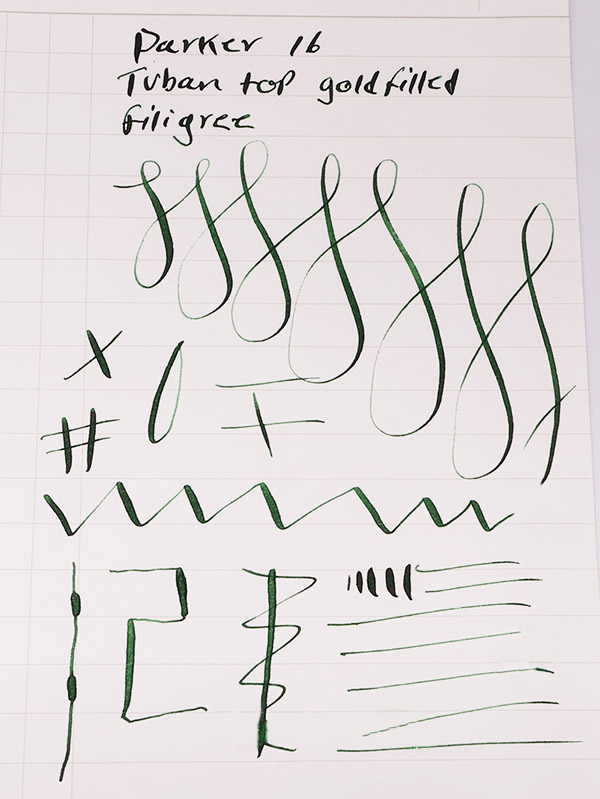 Parker 16
Tuban top goldfilled
filigree